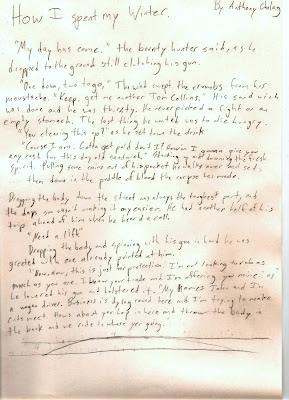 How I spent my Winter.
By Anthony Chalag
"My day has come," the bounty hunter said, as he
dropped to the ground still clutching his gun.
"One down, two to go," The kid swept the crumbs from his
moustache. "Keep, get me another Tom Collins," His sandwich
was done and he was thirsty. He never picked a fight on an
empty stomach. The last thing he wanted was to die hungry.
"You cleaning this up?" as he set down the drink
"Course I am. Gotta get paid don't I? How'm I gonna give you
any cash for this day old sandwich." Standing and downing the fresh
spirit. Pulling some coins out of his pocket he walks over and sets
them down in the puddle of blood the corpse has made.
Dragging the body down the street was always the toughest part, and
the days son start making it any easier. He had another half of his
trip ahead of him when he heard a call.
"Need a lift"
Dropping the body and spinning with his gun in hand he was
greeted with one already pointed at him.
"Now, now, this is just for protection. I'm not looking to rob as
much as you are. I know your trade and I'm offering you mine" as
he lowered his gun and holstered it. "My names John and I'm
a wagon driver. Business is dying round here and I'm trying to make
ends meet. How about you hop in here and throw the body in
the back and we ride to where yer going.